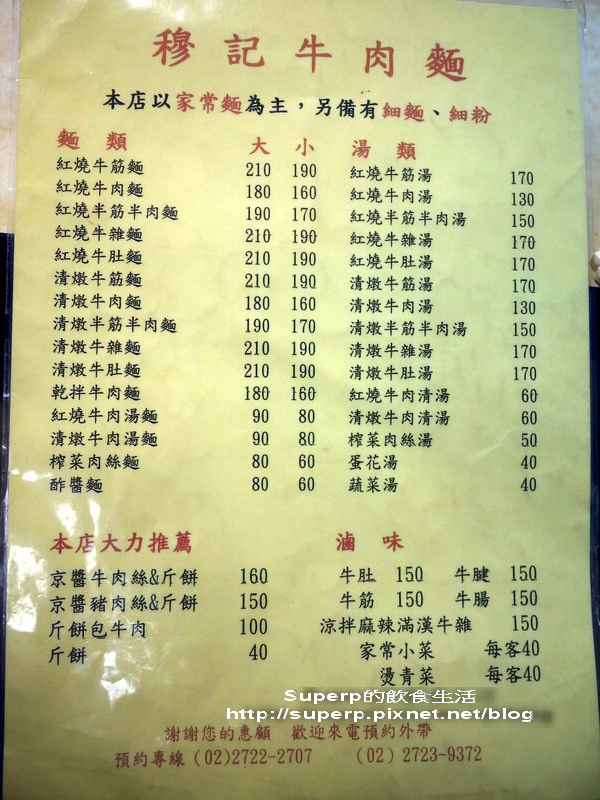 穆記牛肉麵
本店以家常麵為主，另備有細麵、細粉
麵類 大 小
紅燒牛筋麵 210 190
紅燒牛肉麵 180 160
紅燒半筋半肉麵 190 170
紅燒牛雜麵 210 190
紅燒牛肚麵 210 190
清燉牛筋麵 210 190
清燉牛肉麵 180 160
清燉半筋半肉麵 190 170
清燉牛雜麵 210 190
清燉牛肚麵 210 190
乾拌牛肉麵 180 160
紅燒牛肉湯麵 90 80
清燉牛肉湯麵 90 80
榨菜肉絲麵 80 60
酢醬麵 80 60
湯類
紅燒牛筋湯 170
紅燒牛肉湯 130
紅燒半筋半肉湯 150
紅燒牛雜湯 170
紅燒牛肚湯 170
清燉牛筋湯 170
清燉牛肉湯 130
清燉半筋半肉湯 150
清燉牛雜湯 170
清燉牛肚湯 170
紅燒牛肉清湯 60
清燉牛肉清湯 60
榨菜肉絲湯 50
蛋花湯 40
蔬菜湯 40
本店大力推薦
京醬牛肉絲&斤餅 160
京醬豬肉絲&斤餅 150
斤餅包牛肉 100
斤餅 40
滷味
牛肚 150 牛腱 150
牛筋 150 牛腸 150
涼拌麻辣滿漢牛雜 150
家常小菜 每客40
燙青菜 每客40
Superp的飲食生活
http://superp.pixnet.net/blog
謝謝您的惠顧 歡迎來電預約外帶
預約專線 (02)2722-2707 (02) 2723-9372